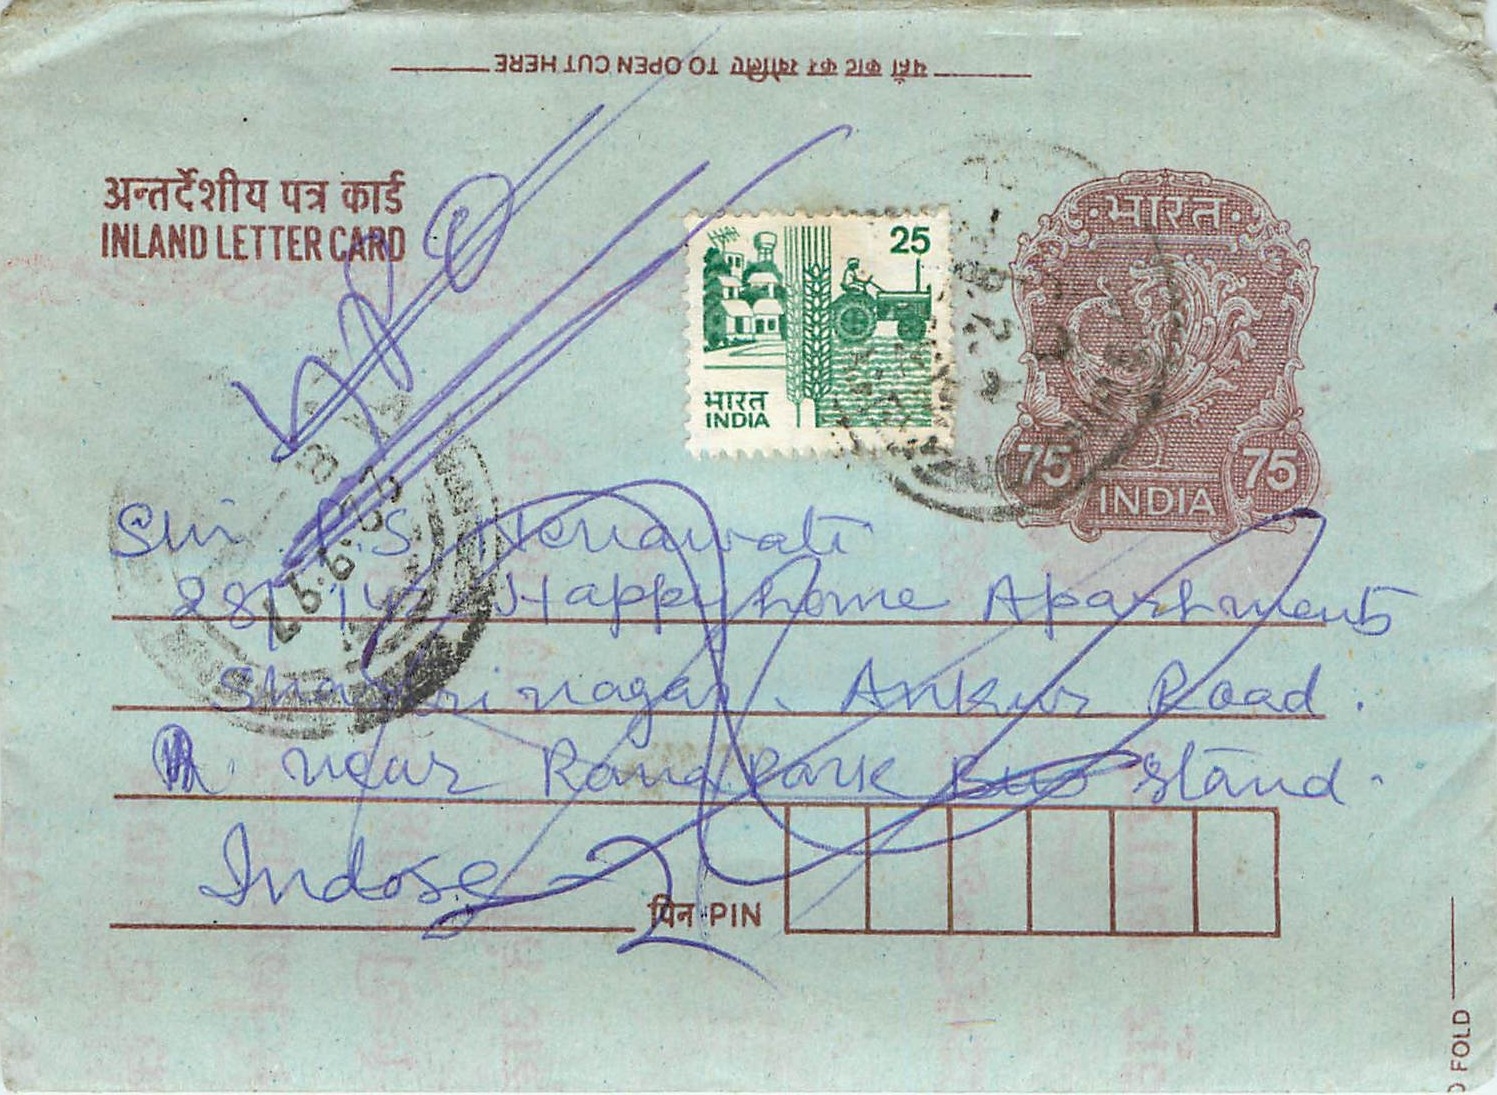 यहाँ काट कर खोलिए TO OPEN CUT HERE
अन्तर्देशीय पत्र कार्ड
INLAND LETTER CARD
25
भारत
INDIA
भारत
75 75
INDIA
Shri P.S. Neriawati
28/142 Happy home Apartments
Shastri nagar, Ankur Road.
near Rang Park Bus Stand.
Indore - 2
पिन PIN
FOLD